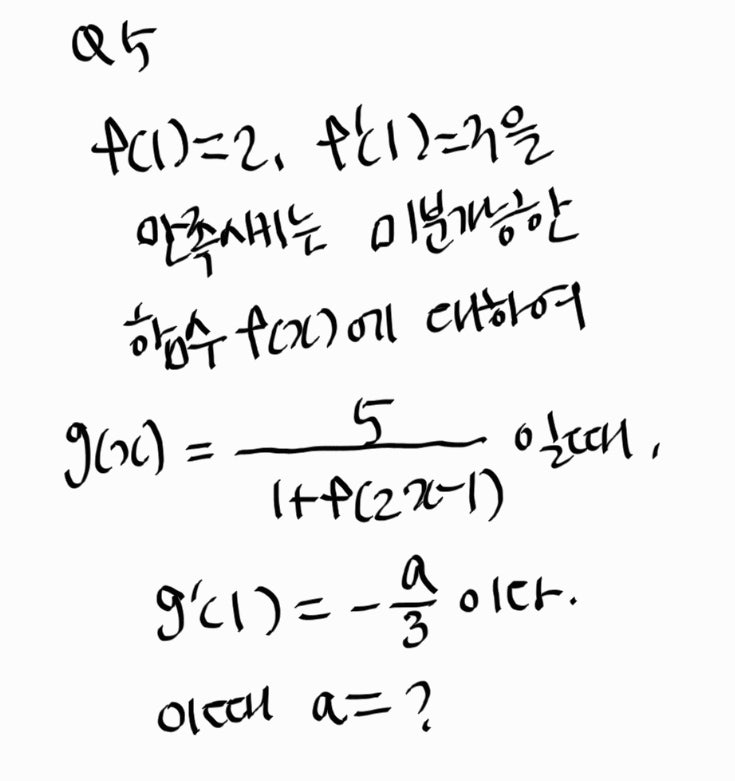 Q5
f(1)=2, f'(1)=3을
만족시키는 미분가능한
함수 f(x)에 대하여
g(x) = 5/(1+f(2x-1)) 일때,
g'(1) = -a/3 이다.
이때 a=?